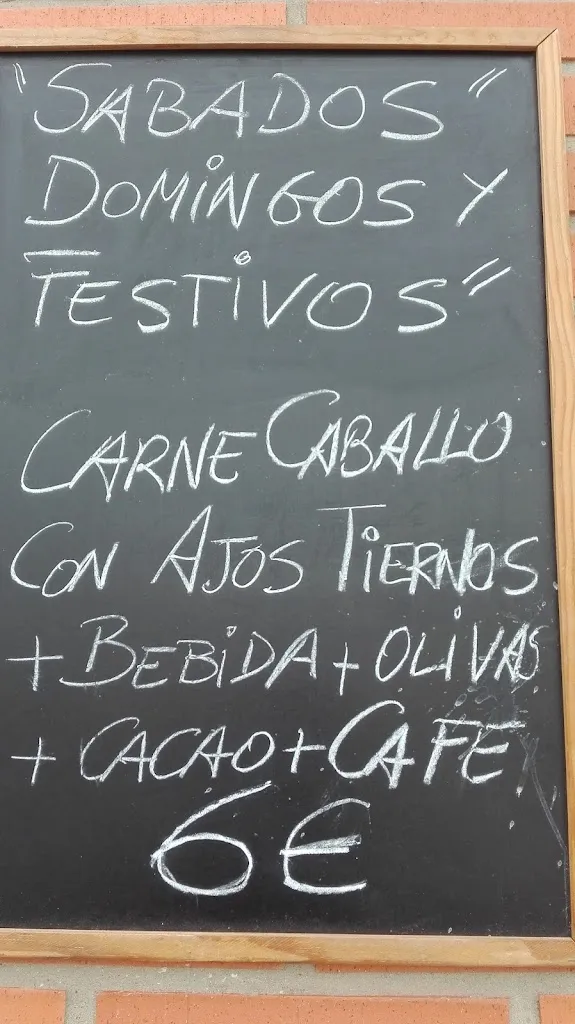 "SABADOS"
DOMiNGOS Y
FESTiVOS"
CARNE CABALLO
CON AJOS TiERNOS
+ BEBiDA + OLiVAS
+ CACAO + CAFE
6€